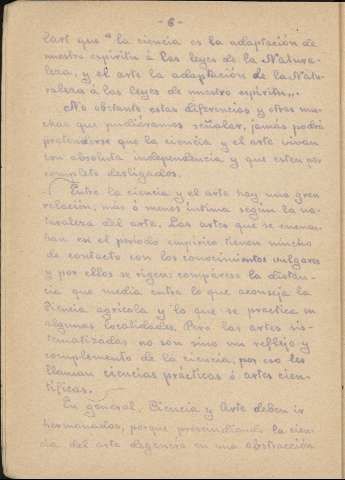 - 6 -
lart que "la ciencia es la adaptación de
nuestro espíritu á las leyes de la Natura-
leza, y el arte la adaptación de la Natu-
raleza á las leyes de nuestro espíritu".
No obstante estas diferencias y otras mu-
chas que pudiéramos señalar, jamás podrá
pretenderse que la ciencia y el arte vivan
con absoluta independencia y que estén por
completo desligados.
Entre la ciencia y el arte hay una gran
relación, más ó menos íntima según la na-
turaleza del arte. Las artes que se encuen-
tran en el período empírico tienen mucho
de contacto con los conocimientos vulgares
y por ellos se rigen; compárese la distan-
cia que media entre lo que aconseja la
Ciencia agrícola y lo que se practica en
algunas localidades. Pero las artes sis-
tematizadas no són sino un reflejo y
complemento de la ciencia, por eso les
llaman ciencias prácticas ó artes cien-
tíficas.
En general, Ciencia y Arte deben ir
hermanadas, porque prescindiendo la cien-
cia del arte degenera en una abstracción